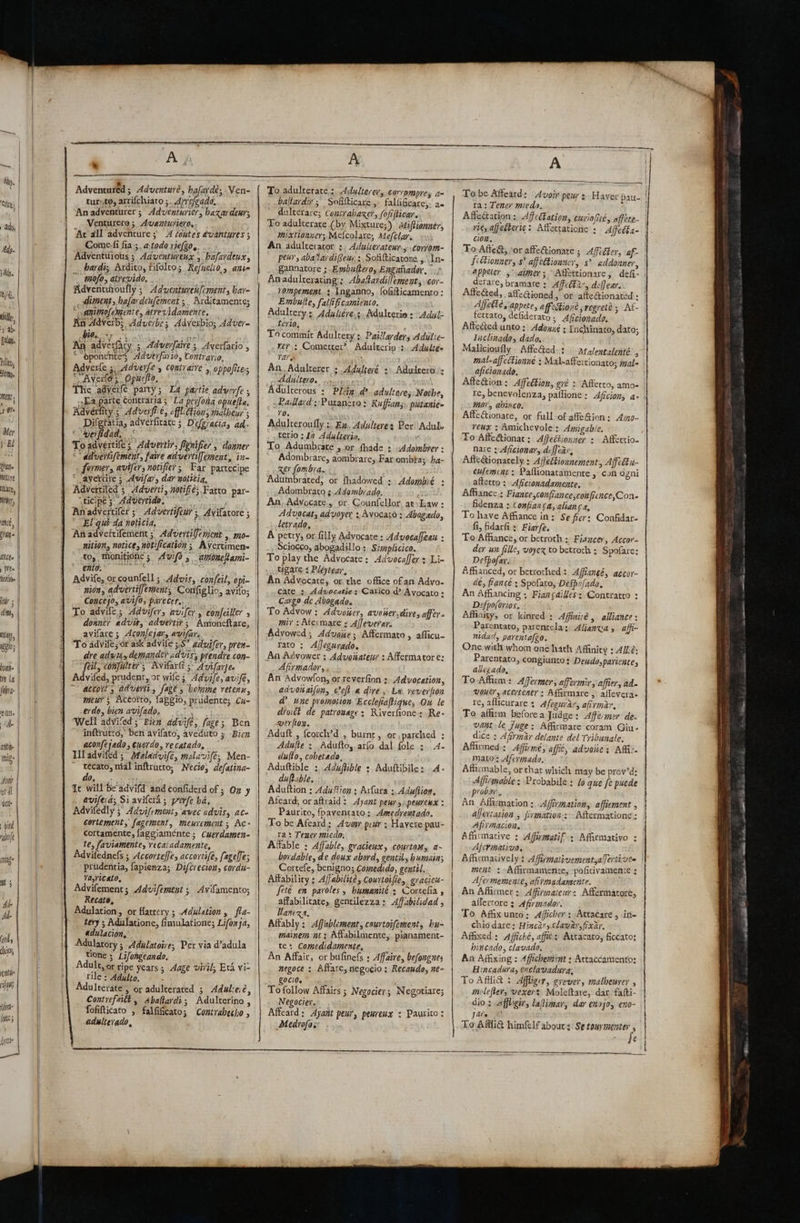 A
Adventuréd ; Adventuré, hasardé ; Ven-
turato, arrischiato ; Arriscado.
An adventurer ; Adventurier, hazardeur ;
Venturero ; Avanturiero.
At all adventure ; A toutes evantures ;
Come si sia ; a todo riesgo.
Adventurous ; Adventureux, hasardeux,
hardi ; Ardito, risolto ; Resuelto, ani-
moso, atrevido.
Adventurously ; Adventureusement, har-
diment, hasardeusement ; Arditamente ;
animosamente, atrevidamente.
An Adverb ; Adverbe ; Adverbio ; Adver-
bio.
An adversary ; Adversaire ; Aversario,
oponente ; Adversario, Contrario.
Adverse ; Adverse, contraire, opposite ;
Averso ; Opuesto.
The adverse party ; La partie adverse ;
La parte contraria ; La persona opuesta.
Adversity ; Adversité, affliction, malheur ;
Disgratia, adversitate ; Disgracia, ad-
versidad.
To advertise ; Advertir, signifier, donner
advertissement, faire advertissement, in-
former, aviser, notifier ; Far partecipe
avertire ; Avisar, dar noticia.
Advertised ; Adverti, notifié ; Fatto par-
ticipe ; Advertido.
An advertiser ; Advertisseur ; Avisatore ;
El què da noticia.
An advertisement ; Advertissement, mo-
nition, notice, notification ; Avertimen-
to, monitione ; Aviso, amonestami-
ento.
Advise, or counsell ; Advis, conseil, opi-
nion, advertissement ; Consiglio, aviso ;
Concejo, aviso, parecer.
To advise ; Adviser, aviser, conseiller,
donner advis, advertir ; Amonestare,
avisare ; Aconsejar, avisar.
To advise, or ask advise ; S' adviser, pren-
dre advis, demander advis, prendre con-
seil, consulter ; Avisarsi ; Avisarse.
Advised, prudent, or wise ; Advisé, avisé,
accort, adverti, sage, homme retenu,
meur ; Accorto, saggio, prudente ; Cu-
erdo, bien avisado.
Well advised ; Bien advisé, sage ; Ben
instrutto, ben avisato, aveduto ; Bien
aconsejado, cuerdo, recatado.
Ill advised ; Maladvisé, malavisé ; Men-
tecato, mal instrutto ; Necio, desatina-
do.
It will be advisd and considerd of ; On y
avisera ; Si aviserà ; verse há.
Advisedly ; Advisement, avec advis, ac-
cortement, sagement, meurement ; Ac-
cortamente, saggiamente ; Cuerdamen-
te, saviamente, recatadamente.
Advisedness ; Accortesse, accortise, sagesse ;
prudentia, sapienza ; Discrecion, cordu-
ra, ricato.
Advisement ; Advisement ; Avisamento ;
Recato.
Adulation, or flattery ; Adulation, fla-
tery ; Adulatione, simulatione ; Lisonja,
adulacion.
Adulatory ; Adulatoire ; Per via d'adula
tione ; Lisongeando.
Adult, or ripe years ; Age viril ; Età vi-
rile : Adulto.
Adulterate, or adulterated ; Adulteré,
Contrefaict, Abastardi ; Adulterino,
sofisticato, falsificato ; Contrahecho,
adulterado.
A
To adulterate ; Adulterer, corrompre, a-
bastardir ; Sofisticare, falsificare ; a-
dulterare ; Contrahazer, sofisticar.
To adulterate (by Mixture ;) Mistionner,
mixtionner ; Mescolare ; Mesclar.
An adulterator ; Adulterateur, corrom-
peur, abastardisseur ; Sofisticatore, In-
gannatore ; Embustero, Engañador.
An adulterating ; Abastardissement, cor-
rompement ; Inganno, sofisticamento :
Embuste, falsificamiento.
Adultery ; Adultére ; Adulterio : Adul-
terio.
To commit Adultery ; Paillarder, Adulte-
rer : Cometter' Adulterio : Adulte-
rar.
An Adulterer ; Adulteré : Adultero :
Adultero.
Adulterous : Plein d' adultere, Noiche,
Paillard : Putanero : Rufian, putanie-
ro.
Adulterously : En Adultere : Per Adul-
terio : In Adulterio.
To Adumbrate, or shade : Adombrer :
Adombrare, aombrare, Far ombra ; ha-
zer sombra.
Adumbrated, or shadowed : Adombré :
Adombrato ; Adombrado.
An Advocate, or Counsellor at Law :
Advocat, advoyer : Avocato : Abogado,
letrado.
A petty, or silly Advocate : Advocasseau :
Sciocco, abogadillo : Simplicico.
To play the Advocate : Advocasser : Li-
tigare : Pleytear.
An Advocate, or the office of an Advo-
cate : Advocatie : Carico d' Avocato :
Cargo de Abogado.
To Advow : Advoüer, avouer, dire, affer-
mir : Afermare : Asseverar.
Advowed ; Advoüe ; Affermato, assicu-
rato : Assegurado.
An Advower : Advoüateur : Affermatore :
Afirmador.
An Advowson, or reversion : Advocation,
advouaison, c'est a dire, La reversion
d' une promotion Ecclesiastique, Ou le
droict de patronage : Riversione : Re-
version.
Adust, scorch'd, burnt, or parched :
Aduste : Adusto, arso dal sole : A-
dusto, cohetado.
Adustible : Adustible : Adustibile : A-
dustable.
Adustion : Adustion : Arsura : Adustion.
Afeard, or affraid : Ayant peur, peureux :
Paurito, spaventato : Amedrentado.
To be Afeard ; Avoir peur : Havere pau-
ra : Tener miedo.
Affable : Affable, gracieux, courtois, a-
bordable, de doux abord, gentil, humain ;
Cortese, benigno ; Comedido, gentil.
Affability ; Affabilité, Courtoisie, gracieu-
seté en paroles, humanité : Cortesia,
affabilitate, gentilezza : Affabilidad,
llaneza.
Affably : Affablement, courtoisement, hu-
mainement : Affabilmente, pianament-
te : Comedidamente.
An Affair, or business : Affaire, besongne,
negoce : Affare, negocio : Recaudo, ne-
gocio.
To follow Affairs ; Negocier ; Negotiare ;
Negocier.
Affeard : Ayant peur, peureux : Paurito :
Medroso.
A
To be Affeard : Avoir peur : Haver pau-
ra : Tener miedo.
Affectation : Affectation, curiosité, affete-
rie, affecterie : Affettatione : Affecta-
cion.
To Affect, or affectionate ; Affecter, af-
fectionner, s' affectionner, s' addonner,
appeter, aimer ; Affettionare, desi-
derare, bramare : Affectàr, dessear.
Affected, affectioned, or affectionated :
Affecté, appete, affectioné, regreté : Af-
fettato, desiderato, Aficionado.
Affected unto ; Adonné : Inchinato, dato ;
Inclinado, dado.
Maliciously Affected : Malentalenté,
mal-affectionné : Mal-affettionato ; mal-
aficionado.
Affection : Affection, gré : Affetto, amo-
re, benevolenza, passione : Aficion, a-
mor, ahinco.
Affectionate, or full of affection : Amo-
reux : Amichevole : Amigable.
To Affectionat ; Affectionner : Affettio-
nare : Aficionar, dessear.
Affectionately : Affectionnement, Affectu-
eusement : Passionatamente, con ogni
affetto : Aficionadamente.
Affiance : Fiance, confiance, confience, Con-
fidenza : Confiança, aliança.
To have Affiance in : Se fier : Confidar-
si, fidarsi : Fiarse.
To Affiance, or betroth : Fiancer, Accor-
der un fille, voyez to betroth : Sposare :
Desposar.
Affianced, or betrothed : Affiancé, accor-
dé, fiancé : Sposato, Desposado.
An Affiancing ; Fiançailles : Contratto :
Desposorios.
Affinity, or kinred : Affinité, alliance :
Parentato, parentela : Aliança, affi-
nidad, parentasgo.
One with whom one hath Affinity : Allié ;
Parentato, congiunto : Deudo, pariente,
allegado.
To Affirm : Affermer, affermir, affier, ad-
vouer, acertener : Affirmare, assevera-
re, assicurare : Asegurar, afirmar.
To affirm before a Judge : Affermer de-
vant le Juge : Affirmare coram Giu-
dice : Afirmàr delante del Tribunale.
Affirmed : Affirmé, affié, advoüe : Affir-
mato : Afermado.
Affirmable, or that which may be prov'd :
Affirmable : Probabile : lo que se puede
probar.
An Affirmation : Affirmation, affiement,
assertation, firmation : Affermatione :
Afirmacion.
Affirmative : Affirmatif : Affirmativo :
Afirmativo.
Affirmatively : Affirmativement, assertive-
ment : Affirmamente, positivamente :
Afermemente, afirmadamente.
An Affirmer : Affirmateur : Affermatore,
assertore : Afirmador.
To Affix unto : Afficher : Attacare, in-
chiodare : Hincàr, clavàr, fixàr.
Affixed : Affiché, affié : Attacato, ficcato ;
hincado, clavado.
An Affixing : Affichement : Attaccamento :
Hincadura, enclavadura.
To Afflict : Affliger, grever, malheurer,
molester, vexer : Molestare, dar fasti-
dio : Affligir, lastimar, dar enojo, eno-
jar.
To Afflict himself about : Se tourmenter,
Je